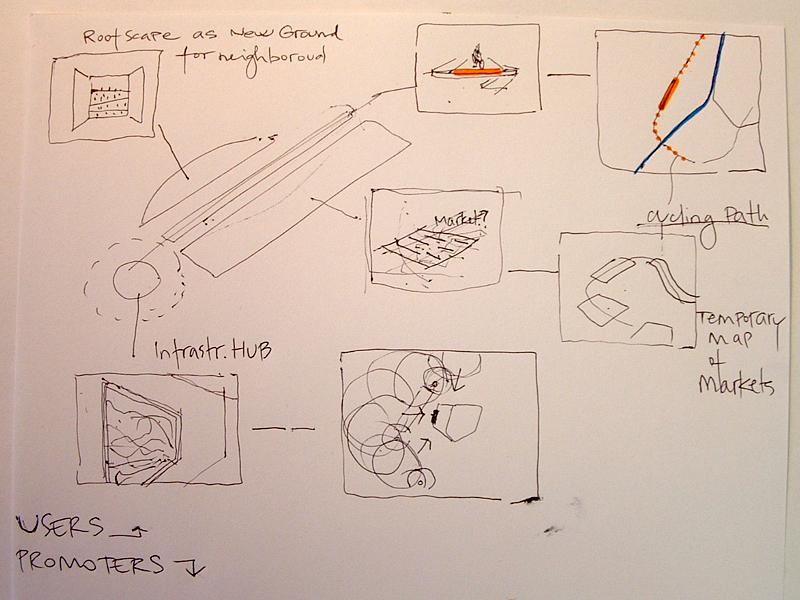 Roofscape as New Ground
for neighboroud
Market?
cycling Path
Temporary
Map
of
Markets
Infrastr. HUB
USERS
PROMOTERS